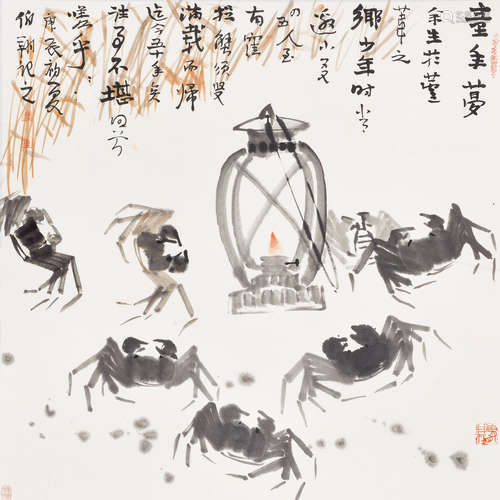 童年夢
余生於蘆
葦之
鄉少年時常
邀小又
四五人至
有窪
捉蟹須臾
滿載而歸
迄今五十年矣
往事不堪回首
嗟乎
庚辰初夏
伯翔記之